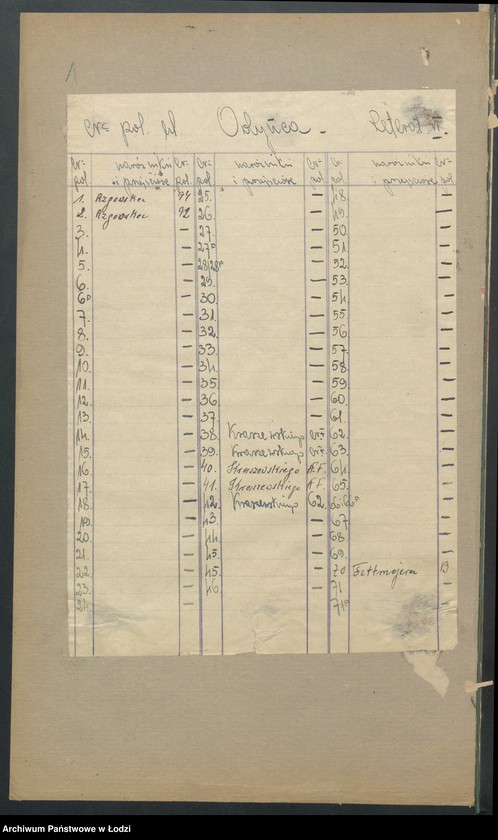 1
Nr pol. ul Odyńca - Literat II.
Nr pol narożniki i przejścia Nr pol Nr pol narożniki i przejścia Nr pol Nr pol narożniki i przejścia Nr pol
1. Rzgowska 94 25. — 48. —
2. Rzgowska 92 26. — 49. —
3. — 27. — 50. —
4. — 27a — 51. —
5. — 28/28a — 52. —
6. — 29. — 53. —
6a — 30. — 54. —
7. — 31. — 55. —
8. — 32. — 56 —
9. — 33. — 57. —
10. — 34. — 58. —
11. — 35 — 59. —
12. — 36 — 60. —
13. — 37 — 61. —
14. — 38. Kraszewskiego 62. —
15. — 39. Kraszewskiego 63. —
16 — 40. Kraszewskiego 64. —
17. — 41. Kraszewskiego 65. —
18. — 42. Kraszewskiego 62. 66-66a —
19. — 43. — 67 —
20. — 44. — 68. —
21. — 45. — 69. —
22. — 45. — 70 Fettmajera 13
23. — 46. — 71 —
24. — 71a —
Archiwum Państwowe w Łodzi